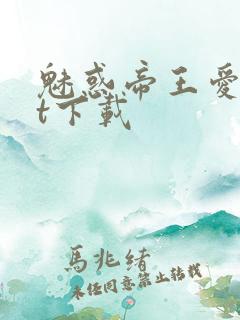 魅惑帝王爱
t下载
馬兆緒
未经同意禁止转载